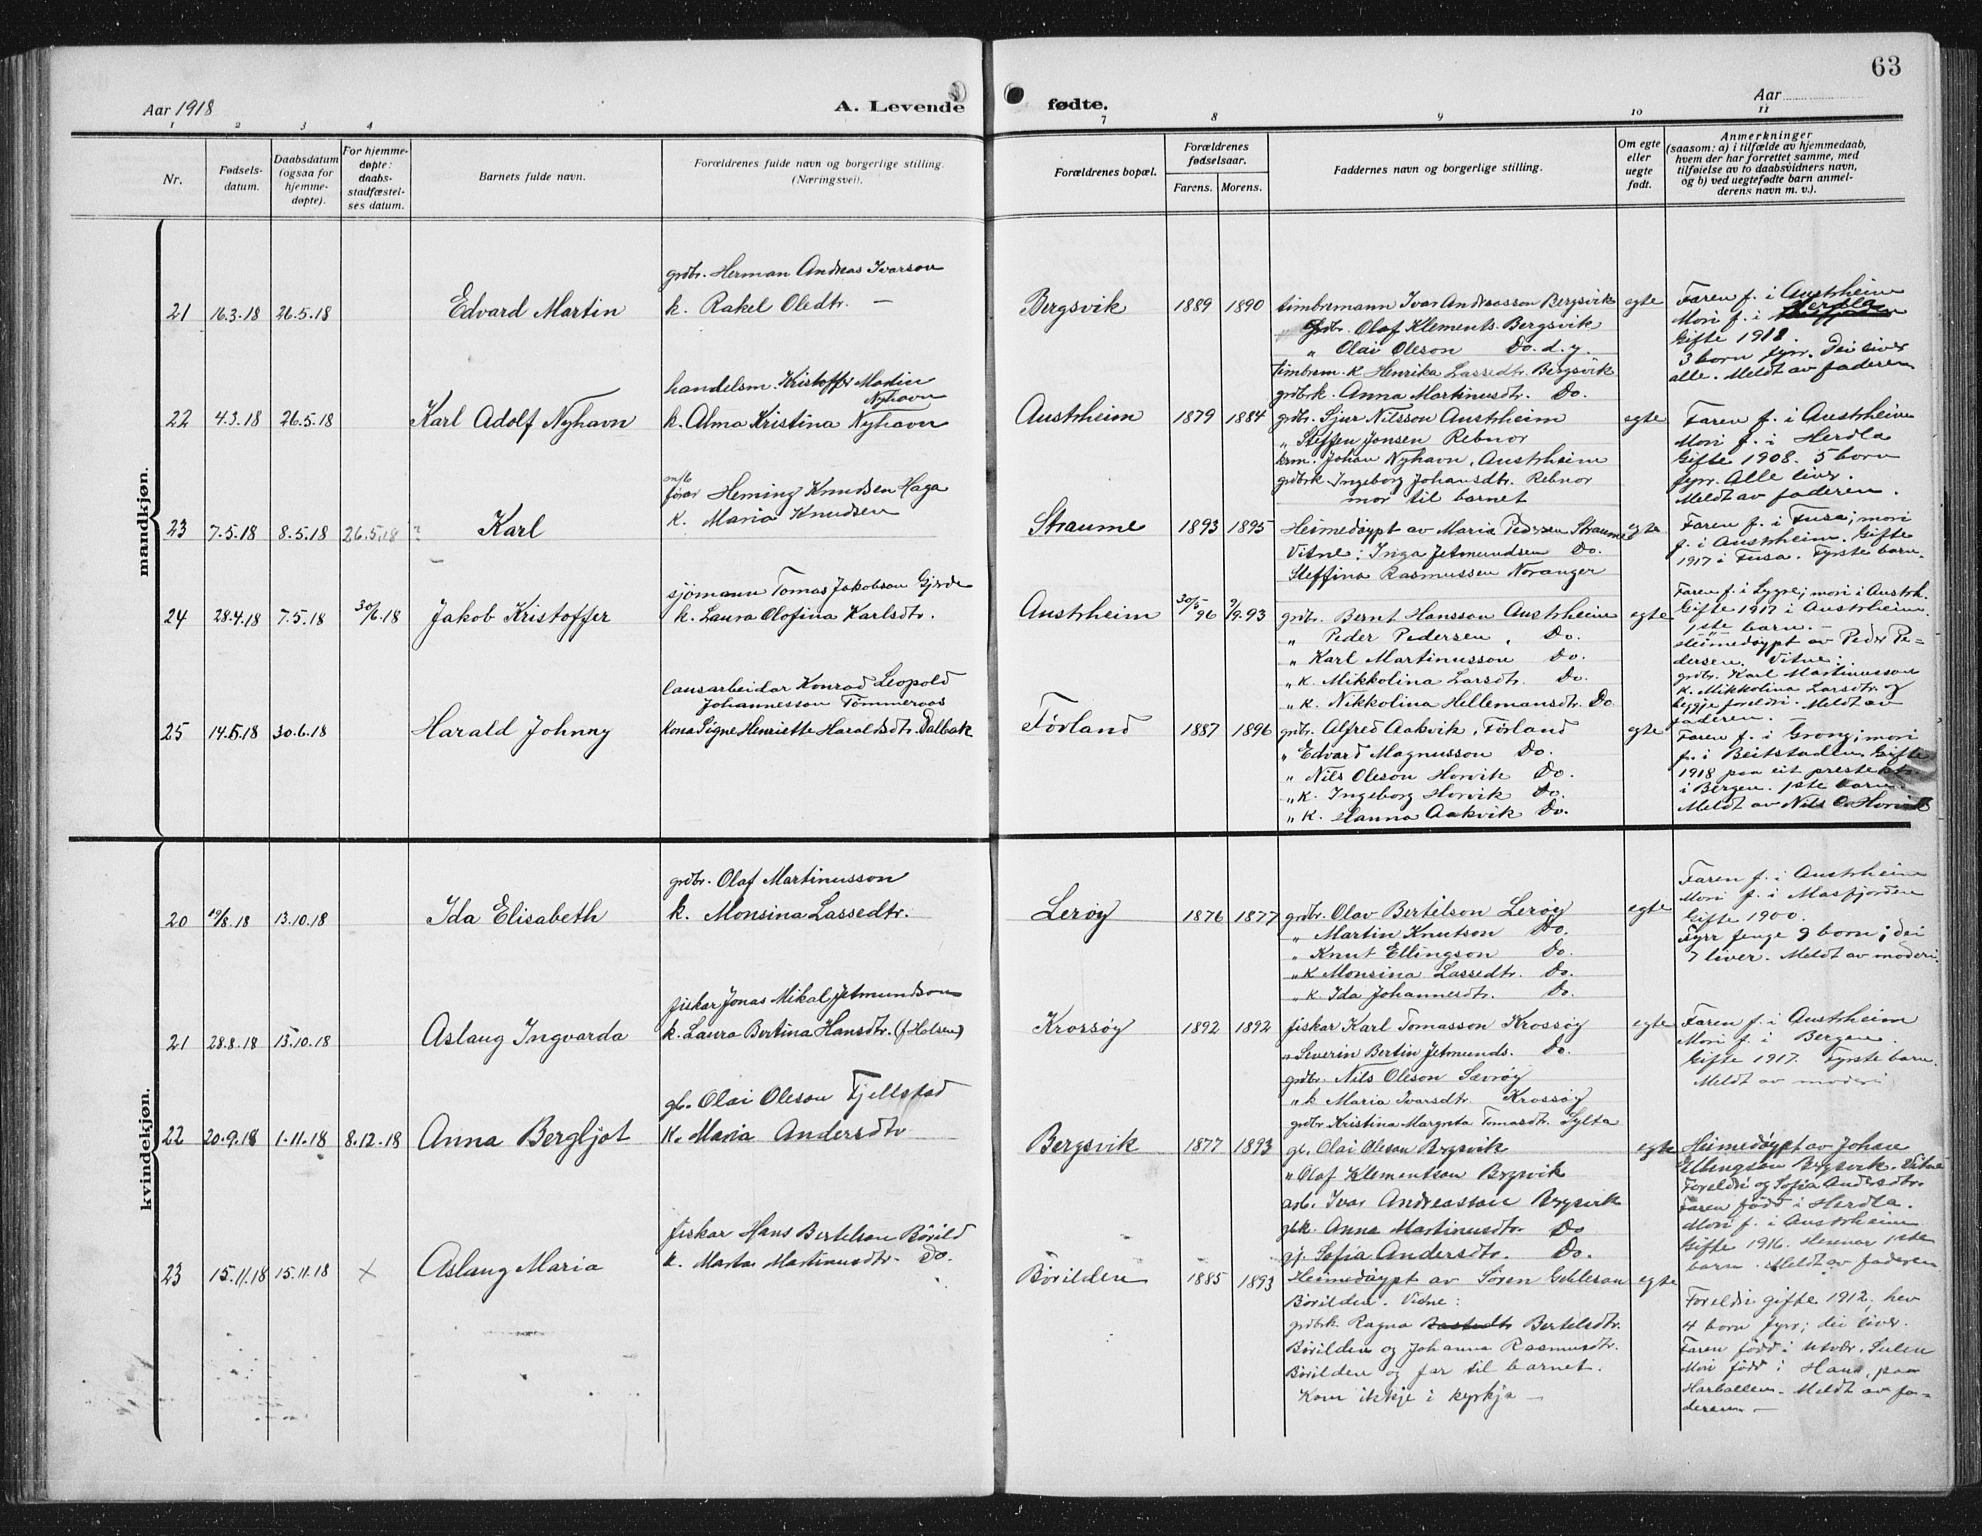 63
Aar 1918
A. Levende fødte.
Aar
1 2 3 4 7 8 9 10 11
Nr.
Fødsels-
datum.
Daabsdatum
(ogsaa for
hjemme-
døpte).
For hjemme-
døpte:
daabs-
stadfæstel-
ses datum.
Barnets fulde navn.
Forældrenes fulde navn og borgerlige stilling.
(Næringsvei).
Forældrenes bopæl.
Forældrenes
fødselsaar.
Farens. Morens.
Faddernes navn og borgerlige stilling.
Om egte
eller
uegte
født.
Anmerkninger
(saasom: a) i tilfælde av hjemmedaab,
hvem der har forrettet samme, med
tilføielse av to daabsvidners navn,
og b) ved uegtefødte barn anmel-
derens navn m. v.).
mandkjøn.
21 16.3.18 26.5.18 Edvard Martin
grdbr. Herman Andreas Ivarson
k. Rakel Oledtr. —
Bergsvik 1889 1890
timbremann Ivar Andreasson Bergsvik
grdbr. Olaf Klements. Bergsvik
" Olai Oleson Do. d. y.
timbrem. k Henrika Lassedtr. Bergsvik
grdbrk. Anna Martinusdtr. Do.
egte
Faren f. i Austrheim
Mori f. i Herdla
Gifte 1918.
3 born fyrr. Dei liver
alle. Meldt av faderen
22 4.3.18 26.5.18 Karl Adolf Nyhavn
handelsm. Kristoffer Martin
Nyhavn
k. Alma Kristina Nyhavn
Austrheim 1879 1884
grdbr. Sjur Nilsson Austrheim
" Steffen Jonsen Rebnor
krm. Johan Nyhavn, Austrheim
grdbrk. Ingeborg Johansdtr. Rebnor
mor til barnet
egte
Faren f. i Austrheim
Mori f. i Herdla
Gifte 1908. 5 born
fyrr. Alle liver.
Meldt av faderen.
23 7.5.18 8.5.18 26.5.18 ? Karl
m/b
førar Heming Knudsen Haga
k. Maria Knudsen
Straume 1893 1895
Heimedøypt av Maria Pedersen Straume
Vitne: Inga Jetmundsen Do.
Steffina Rasmussen Noranger
egte
Faren f. i Fusa; mori
f. i Austrheim. Gifte
1917 i Fusa. Fyrste barn.
24 28.4.18 7.5.18 30/6.18 Jakob Kristoffer
sjømann Tomas Jakobson Gjerde
k. Laura Olofina Karlsdtr.
Austrheim 30/5 96 9/9.93
grdbr. Bernt Hansson Austrheim
" Peder Pedersen, Do.
" Karl Martinusson Do.
" k. Mikkolina Larsdtr. Do.
" k. Nikkolina Hellemansdtr. Do
egte
Faren f. i Lygre; mori i Austrh.
Gifte 1917 i Austrheim.
1ste barn. —
Heimedøypt av Peder Pe=
dersen. Vitne:
grdbr. Karl Martinusson
k. Mikkolina Larsdtr. og
begge foreldri. Meldt av
faderen. —
25 14.5.18 30.6.18 Harald Johnny
lausarbeidar Konrad Leopold
Johannesson Tømmeraas
kona Signe Henriette Haraldsdtr. Dalbak
Førland 1887 1896
grdbr. Alfred Aakvik, Førland
" Edvard Magnusson Do.
" Nils Oleson Horvik Do.
" k. Ingeborg Horvik Do.
" k. Hanna Aakvik Do.
egte
Faren f. i Grong; mori
f. i Beitstaden. Gifte
1918 paa eit prestekt.
i Bergen. 1ste barn.
Meldt av Nils O. Horvik
kvindekjøn.
20 19/8.18 13.10.18 Ida Elisabeth
grdbr. Olaf Martinusson
k. Monsina Lassedtr.
Lerøy 1876 1877
grdbr. Olav Bertelson Lerøy
" Martin Knutson Do.
" Knut Ellingson Do.
" k Monsina Lassedtr. Do.
" k Ida Johannesdtr. Do.
egte
Faren f. i Austrheim
Mori f. i Masfjorden
Gifte 1900.
Fyrr fenge 9 born; dei
7 liver. Meldt av moderi.
21 28.8.18 13.10.18 Aslaug Ingvarda
fiskar Jonas Mikal Jetmundson
k. Laura Bertina Hansdtr. (f. Holsen)
Krossøy 1892 1892
fiskar Karl Tomasson Krossøy
" Severin Bertin Jetmunds. Do.
grdbr. Nils Oleson Sævrøy
" k Maria Ivarsdtr. Krossøy
grdbr. Kristina Margreta Tomasdtr. Sylta
egte
Faren f. i Austrheim
Mori f. i Bergen.
Gifte 1917. Fyrste barn.
Meldt av moderi
22 20.9.18 1.11.18 8.12.18 Anna Bergljot
gb. Olai Oleson Fjellstad
k. Maria Andersdtr
Bergsvik 1877 1893
gb. Olai Oleson Bergsvik
" Olaf Klementson Bergsvik
arb. Ivar Andreassen Bergsvik
gbk. Anna Martinusdtr. Do
gj. Sofia Andersdtr. Do.
egte
Heimedøypt av Johan
Ellingson Bergsvik. Vitne
Foreldri og Sofia Andersdtr.
Faren född i Herdla.
Mori f. i Austrheim
Gifte 1916. Hesenar 1ste
barn. Meldt av faderen
23 15.11.18 15.11.18 × Aslaug Maria
fiskar Hans Bertelson Börild
k. Marta Martinusdtr. Do.
Börilden 1885 1893
Heimedøypt av Sören Gableson
Börilden. Vitne:
grdbrk Ragna Bertelsdtr.
Börilden og Johanna Rasmusdtr.
Börilden og far til barnet.
Kom ikkje i kyrkja —
egte
Foreldri gifte 1912, hev
4 born fyrr; dei liver.
Faren född i Utvær. Sulen
Mori född i Hana, paa
Harballen. Meldt av fa=
deren. —